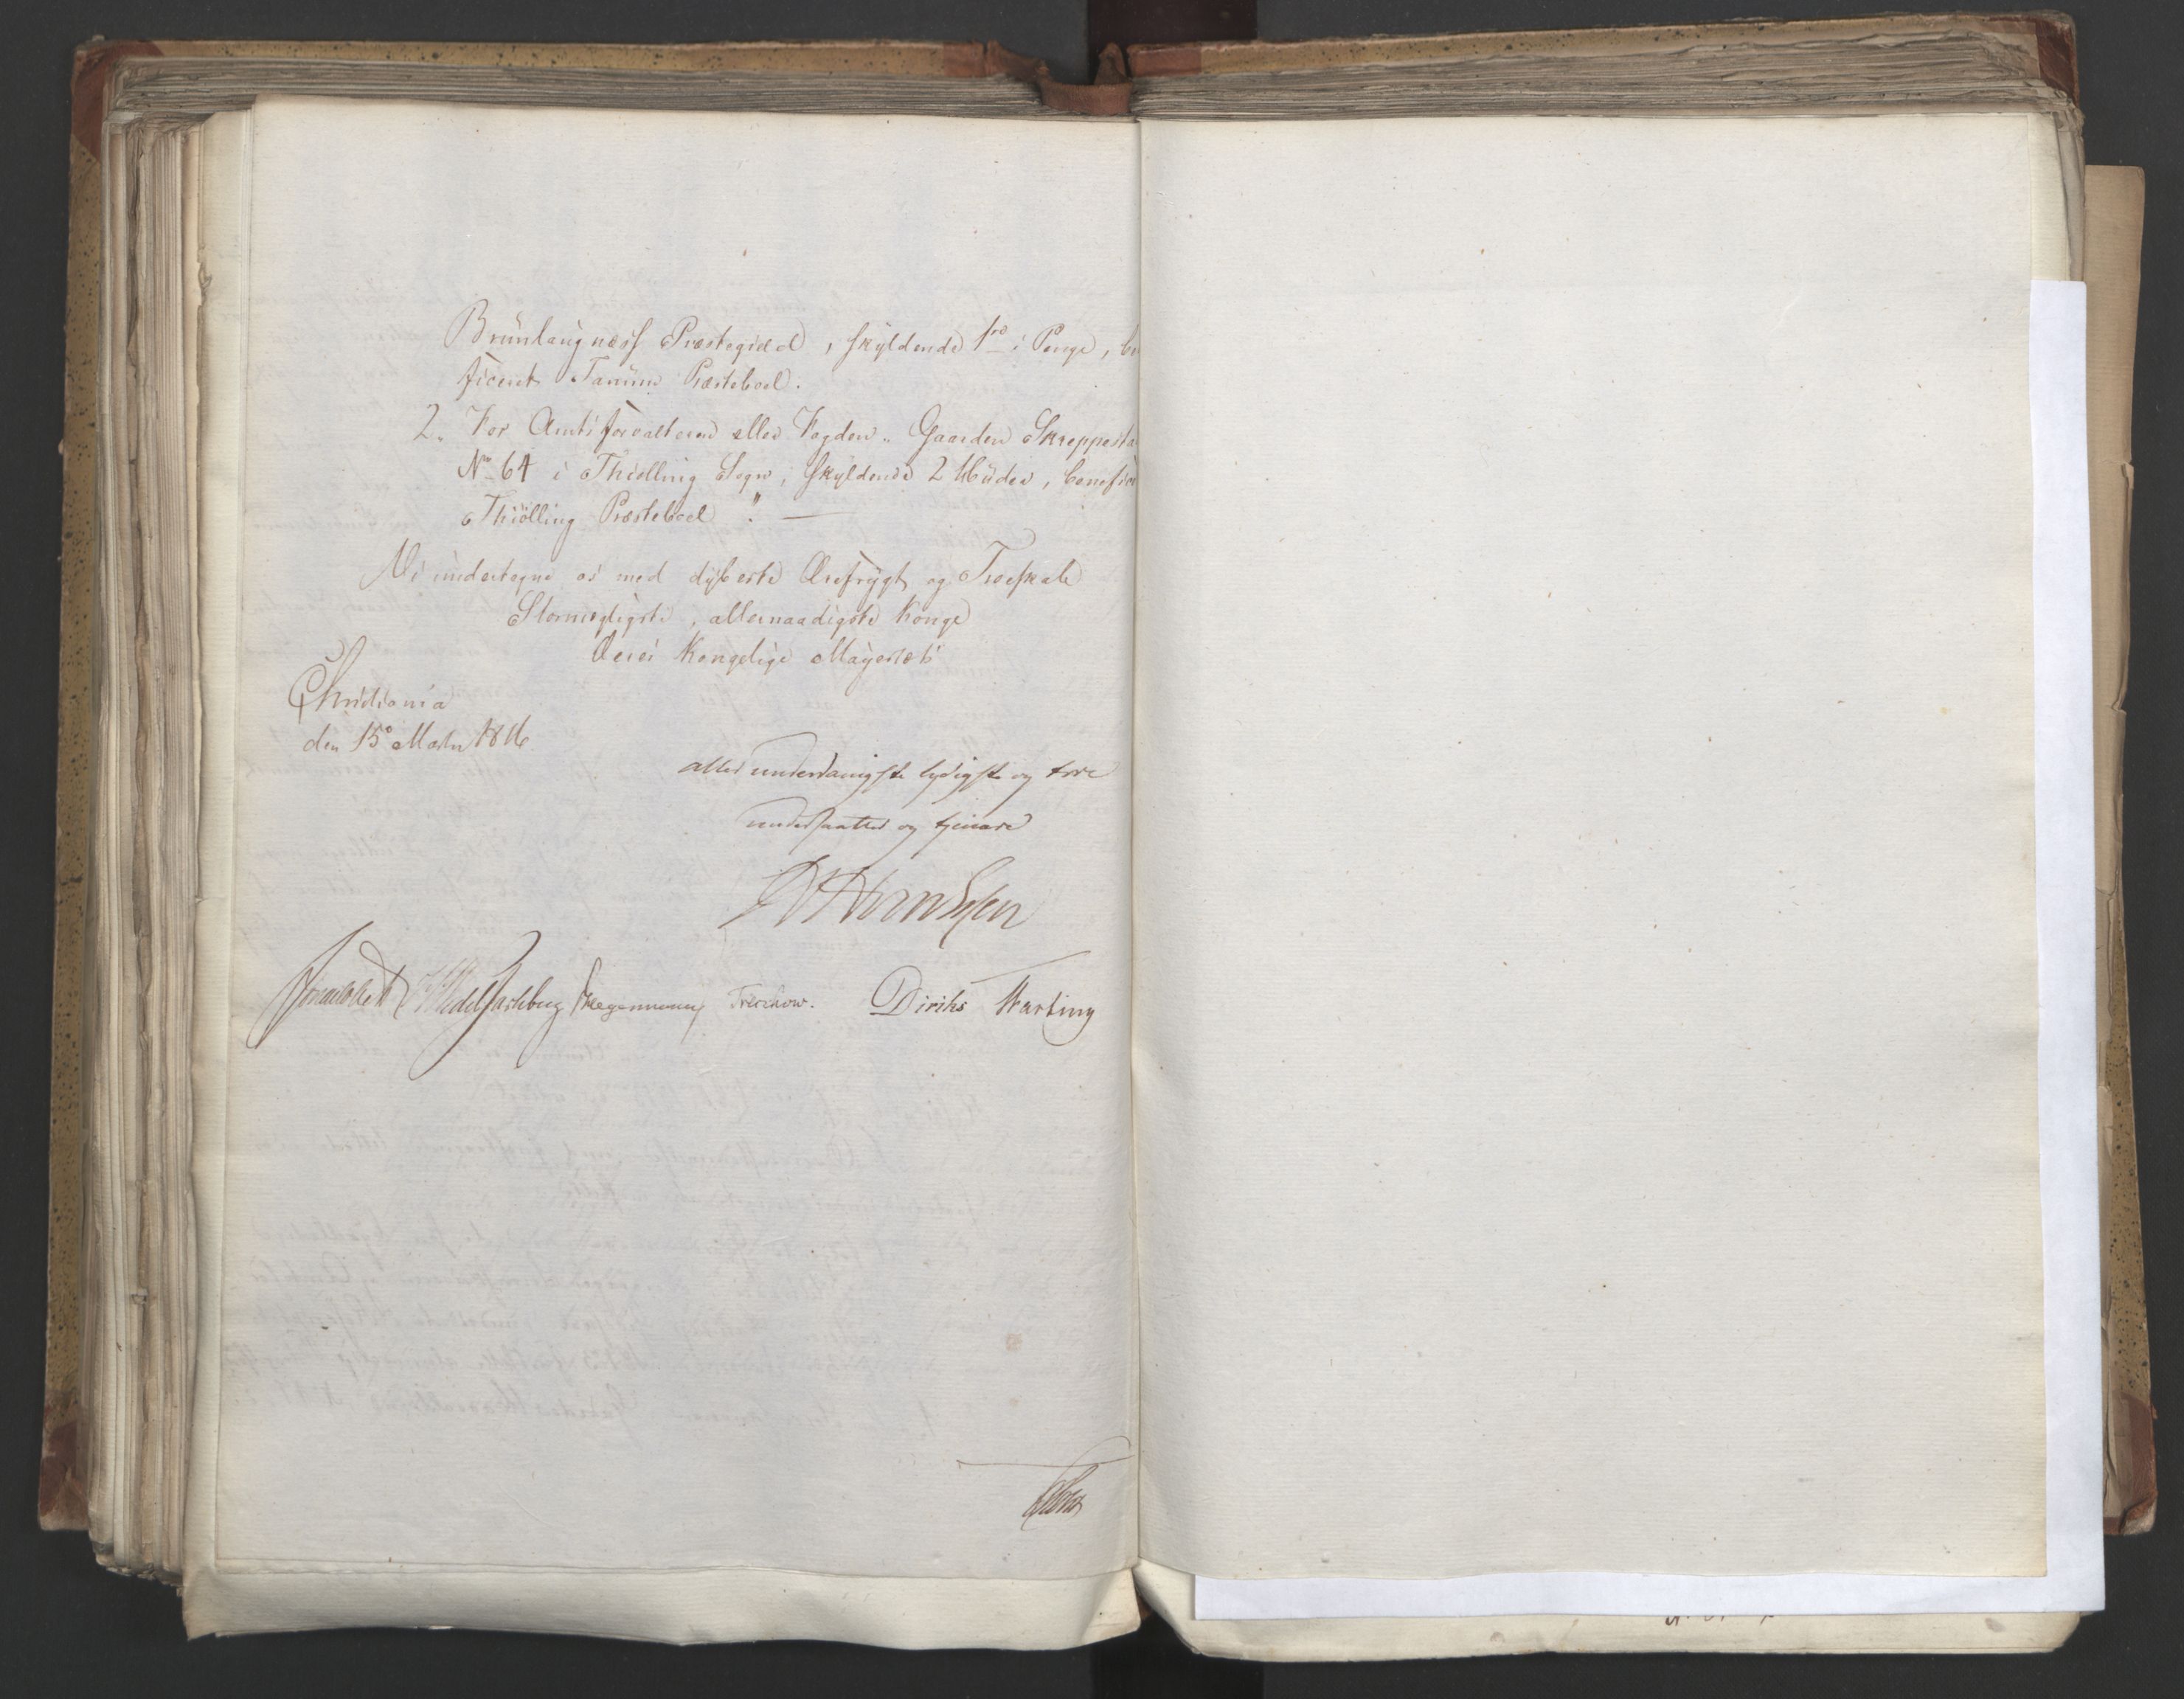 Brünlaugnæss Præstegield, skyldende 1 i Penge, be
ficeret Tanüm Præsteboel.
2. For Amtsforvalteren eller Fogden „ Gaarden Skreppesta
No 64 i Thiølling Sogn, skyldende 2 Hüder, benefice
Thiölling Præsteboel ". —
Vi undertegne os med dybeste Ærefrygt og Troeskab
Stormægtigste, allernaadigste Konge
Deres Kongelige Mayestæts
Christiania
den 15de Martz 1816
allerunderdanigste lydigste og troe
undersaatter og tjenere
Sommerhielm Wedel Jarlsberg Hegermann Treschow. Diriks Hartung